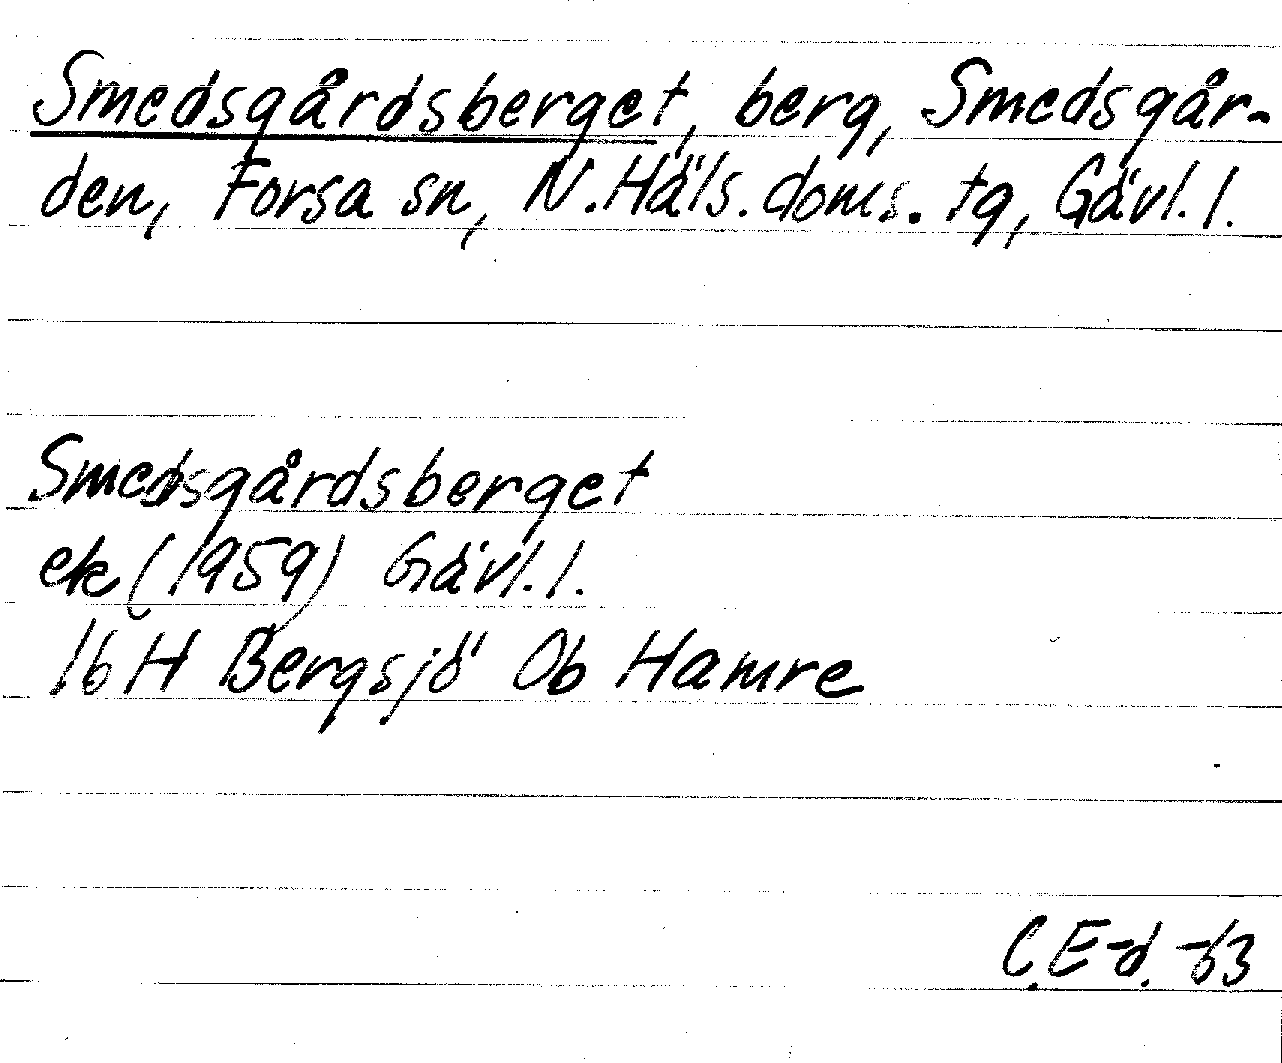 Smedsgårdsberget, berg, Smedsgår-
den, Forsa sn, N.Häls.doms.tg, Gävl.l.
Smedsgårdsberget
ek (1959) Gävl.l.
16 H Bergsjö Ob Hamre
C.E-d. -63